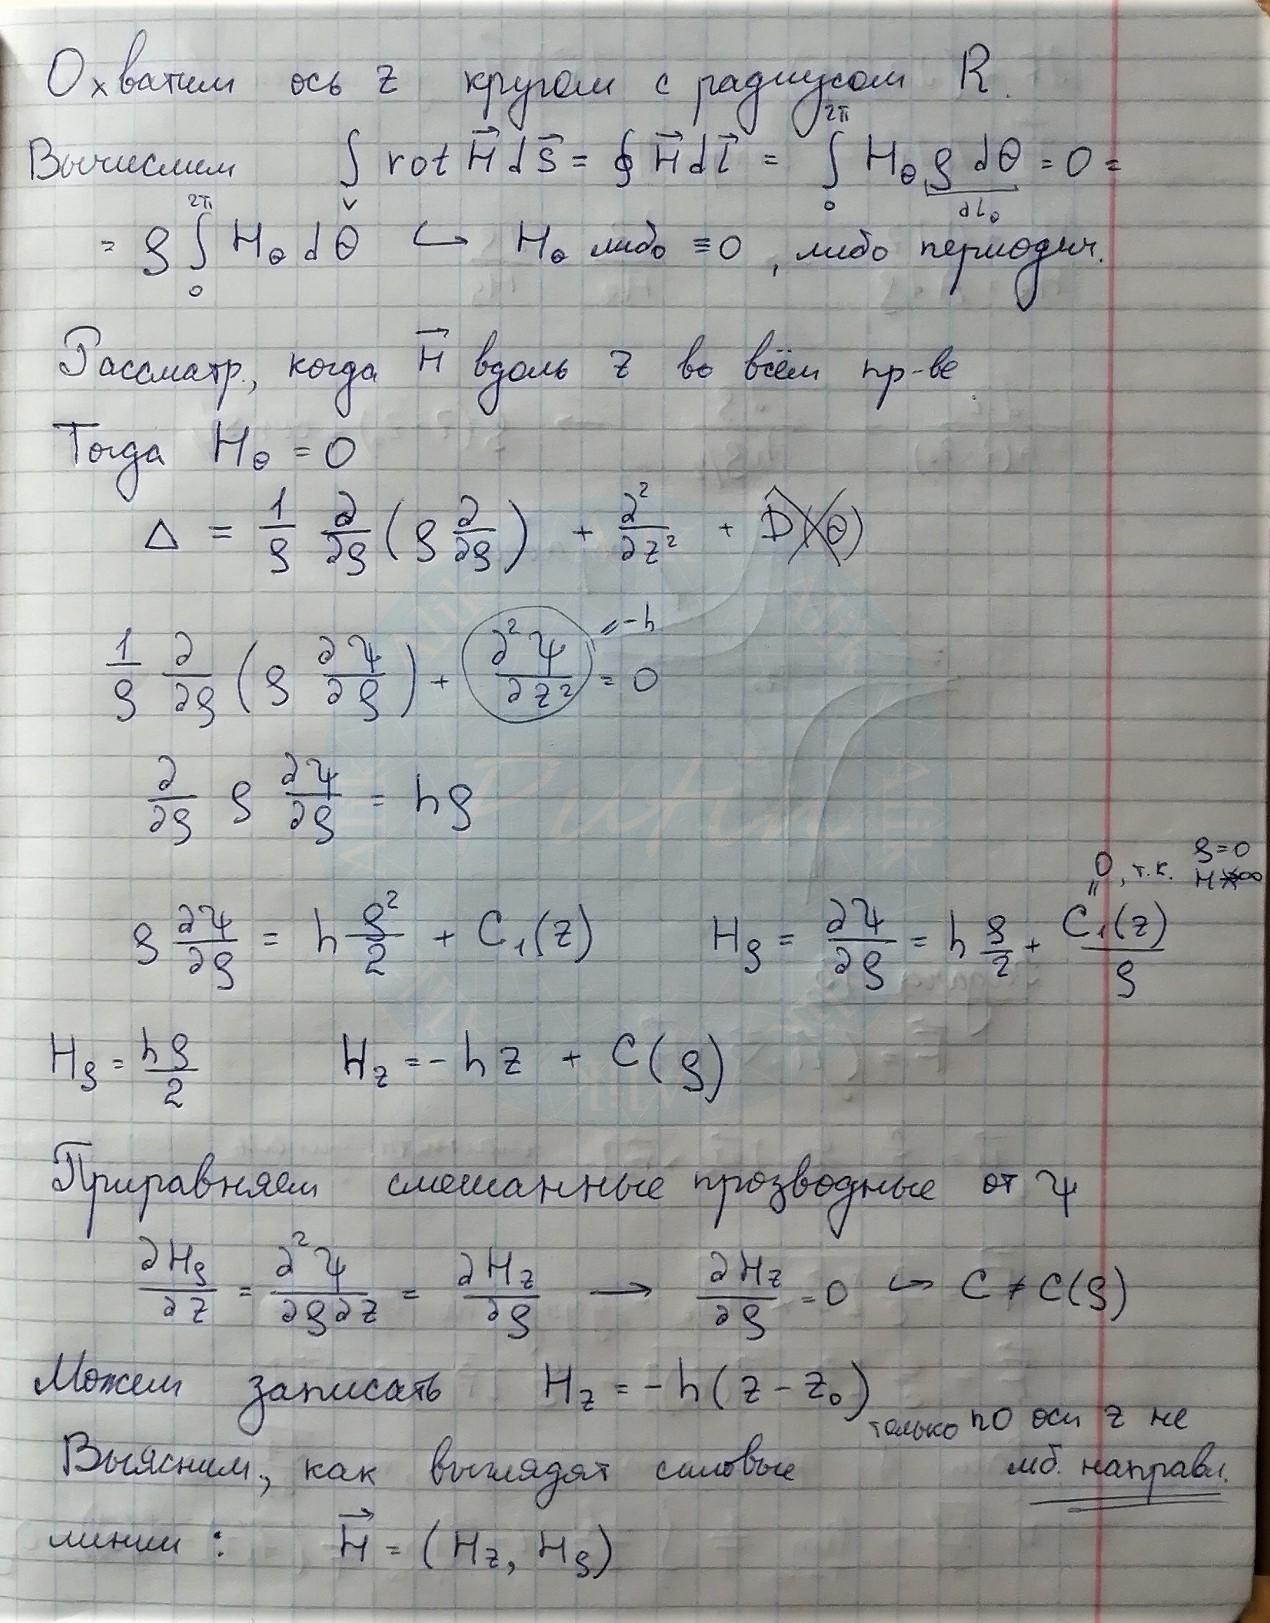 Охватим ось z кругом с радиусом R.
Вычислим ∫ rot H⃗ dS⃗ = ∮ H⃗ dl⃗ = ∫₀^{2π} H_θ ρ dθ = 0 =
dl_θ
= ρ ∫₀^{2π} H_θ dθ ↪ H_θ либо ≡ 0, либо периодич.
Рассматр., когда H⃗ вдоль z во всём пр-ве.
Тогда H_θ = 0
Δ = 1/ρ ∂/∂ρ (ρ ∂/∂ρ) + ∂²/∂z² + D(θ)
1/ρ ∂/∂ρ (ρ ∂ψ/∂ρ) + ∂²ψ/∂z² = 0
= -h
∂/∂ρ ρ ∂ψ/∂ρ = hρ
ρ ∂ψ/∂ρ = h ρ²/2 + C₁(z) H_ρ = ∂ψ/∂ρ = h ρ/2 + C₁(z)/ρ
= 0, т.к. ρ=0
H_ρ = hρ/2 H_z = -hz + C(ρ)
Приравняем смешанные прозводные от ψ
∂H_ρ/∂z = ∂²ψ/∂ρ∂z = ∂H_z/∂ρ → ∂H_z/∂ρ = 0 ↪ C ≠ C(ρ)
Можем записать H_z = -h(z - z₀)
только по оси z не
мб. направл.
Выясним, как выглядят силовые
линии: H⃗ = (H_z, H_ρ)
Putin